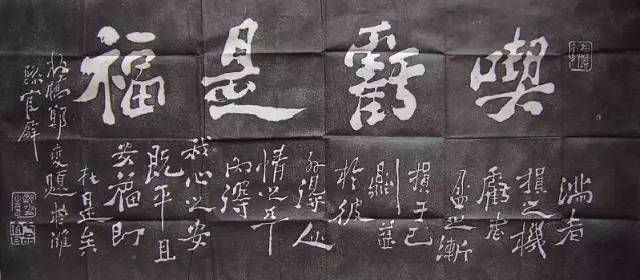 喫虧是福
滿者
損之機
虧者
盈之漸
損于己
則益
於彼
外得人
情之平
內得
我心之安
既平且
安福即
在是矣
板橋鄭燮題於濰
縣官廨